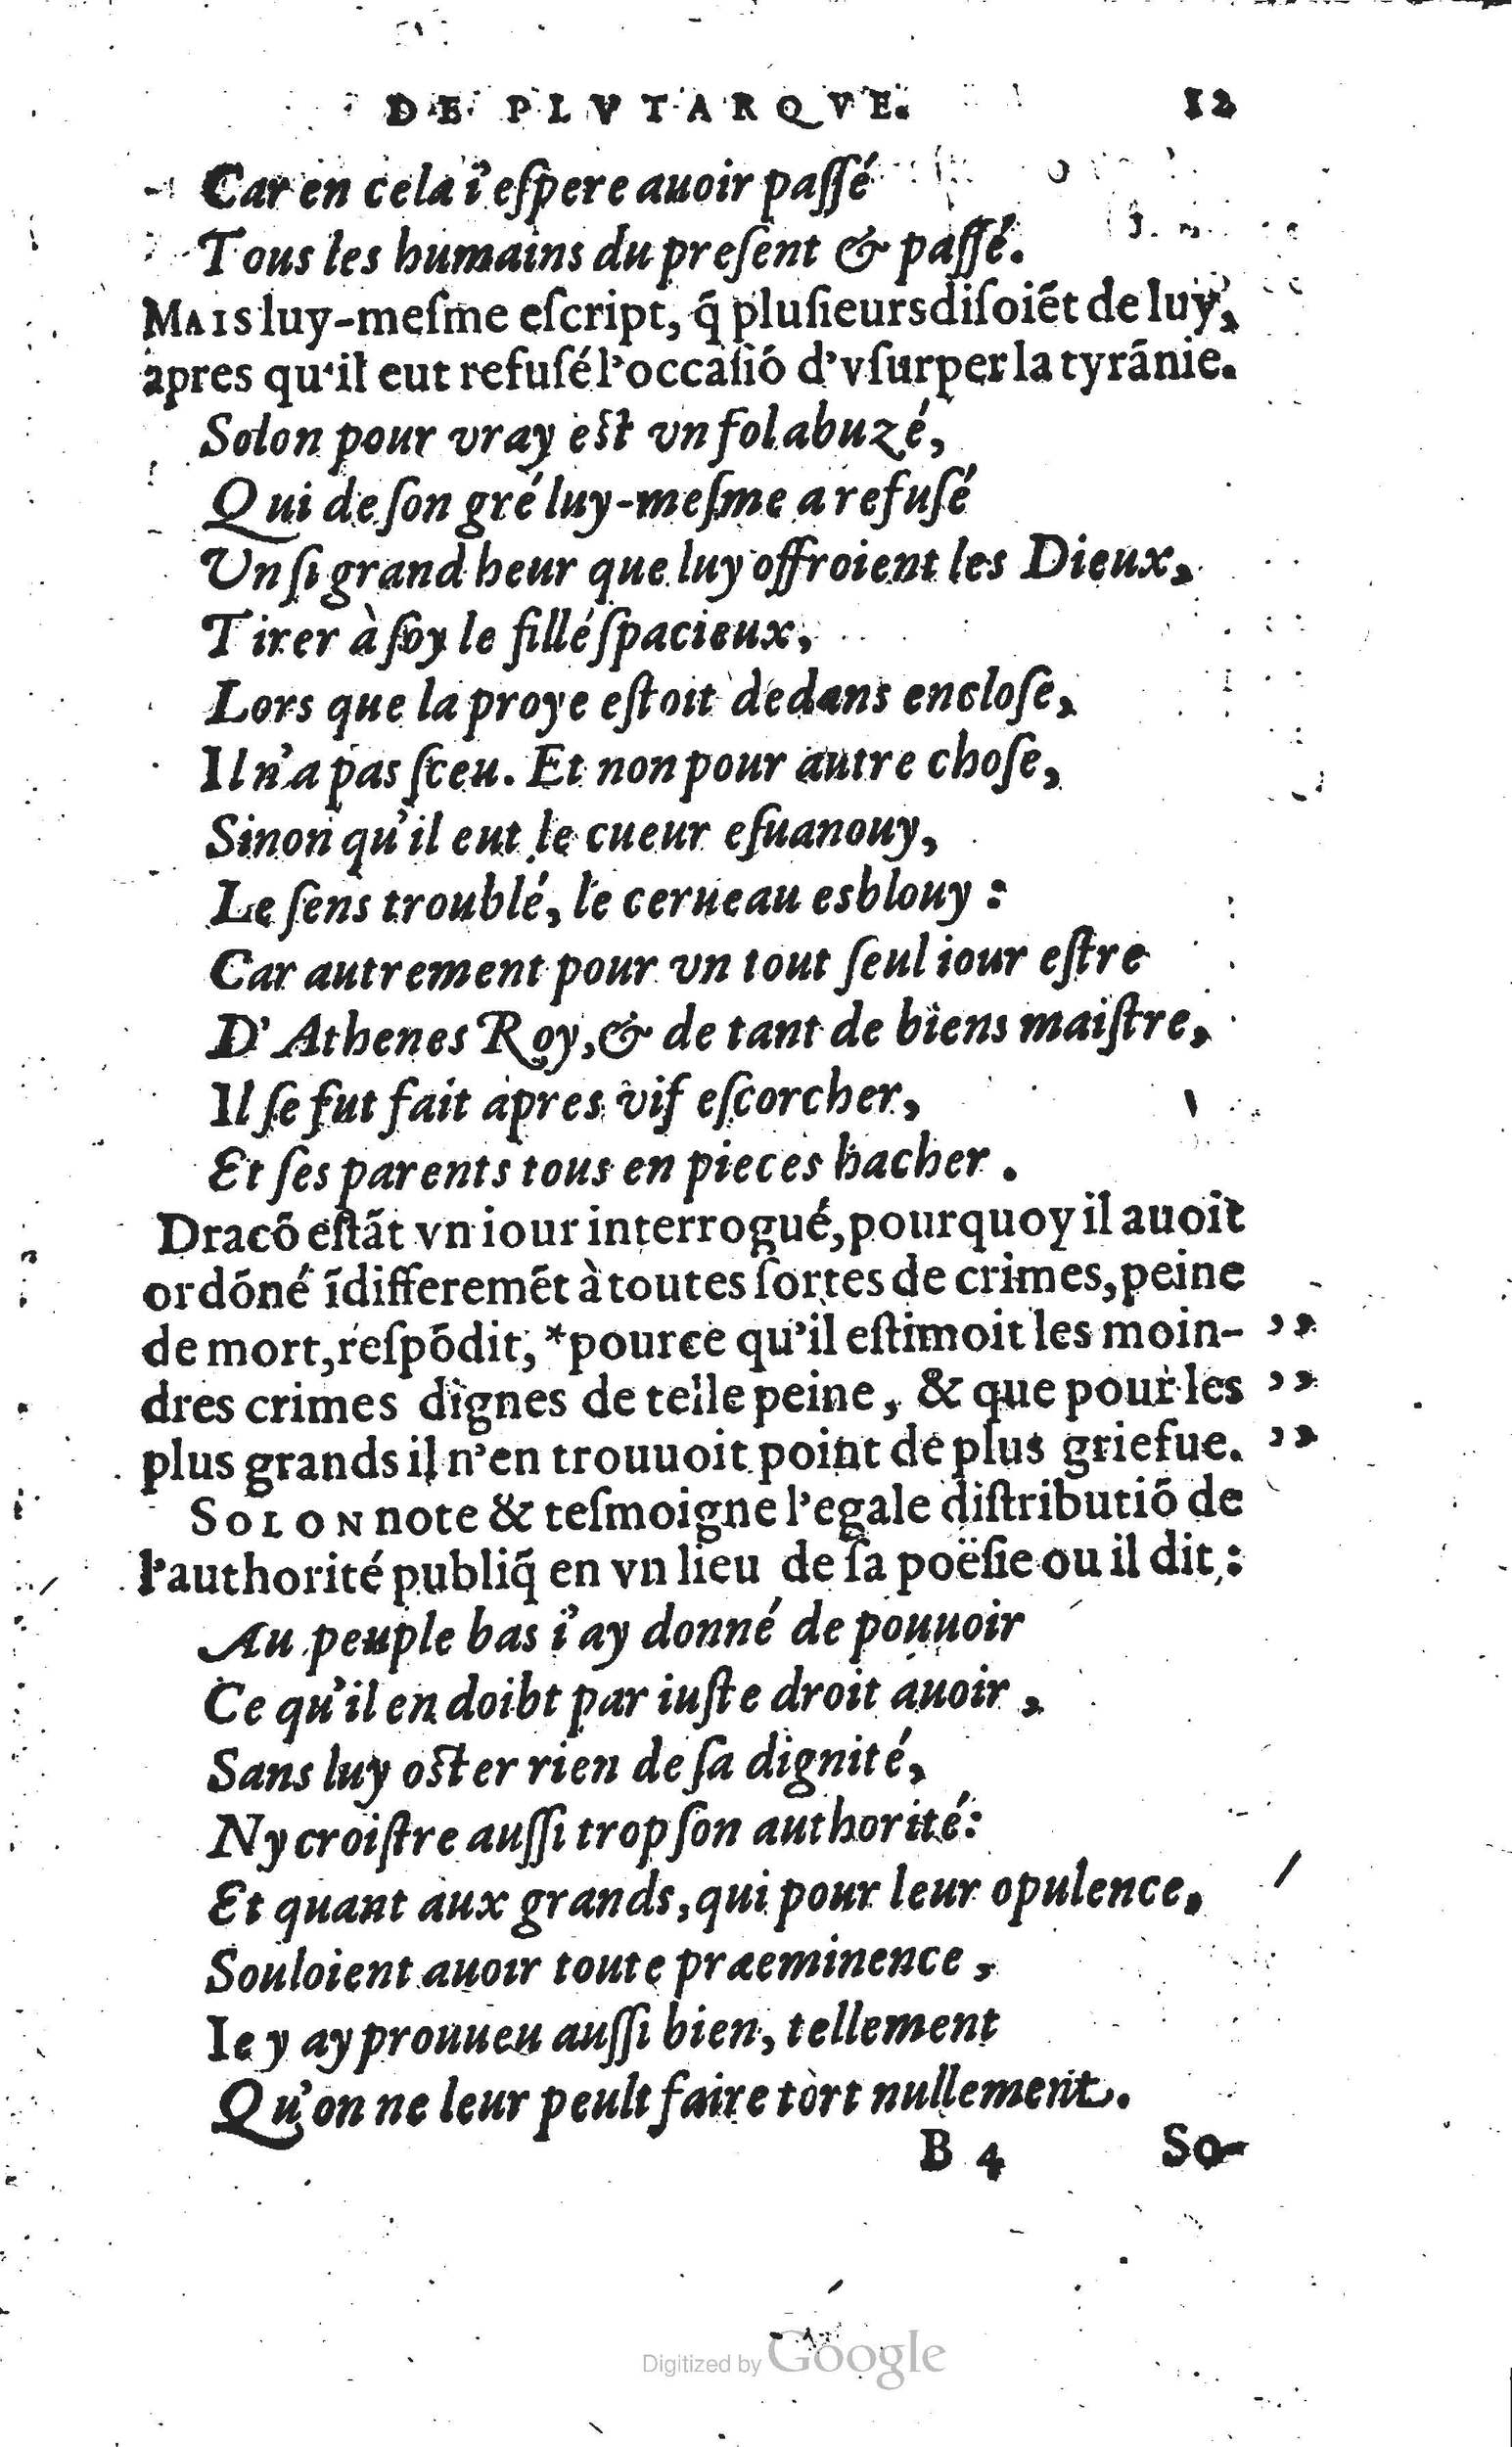 DE PLVTARQVE. 12
Car en cela i'eſpere auoir paſſé
Tous les humains du preſent & paſſé.
MAIS luy-meſme eſcript, q̃ pluſieurs diſoiẽt de luy,
apres qu'il eut refuſé l'occaſió d'vſurper la tyrãnie.
Solon pour vray eſt vn fol abuzé,
Qui de ſon gré luy-meſme a refuſé
Vn ſi grand heur que luy offroient les Dieux,
Tirer à ſoy le fillé ſpacieux,
Lors que la proye eſtoit dedans encloſe,
Il n'a pas ſceu. Et non pour autre choſe,
Sinon qu'il eut le cueur eſuanouy,
Le ſens troublé, le cerueau esblouy :
Car autrement pour vn tout ſeul iour eſtre
D'Athenes Roy, & de tant de biens maiſtre,
Il ſe fut fait apres vif eſcorcher,
Et ſes parents tous en pieces hacher .
Dracõ eſtãt vn iour interrogué, pourquoy il auoit
ordõné ĩdifferemẽt à toutes ſortes de crimes, peine
de mort, reſpõdit, *pource qu'il eſtimoit les moin- ,,
dres crimes dignes de telle peine, & que pour les ,,
plus grands il n'en trouuoit point de plus griefue. ,,
SOLON note & teſmoigne l'egale diſtributiõ de
l'authorité publiq̃ en vn lieu de ſa poëſie ou il dit :
Au peuple bas i'ay donné de pouuoir
Ce qu'il en doibt par iuſte droit auoir ,
Sans luy oſter rien de ſa dignité,
Ny croiſtre auſſi trop ſon authorité:
Et quant aux grands, qui pour leur opulence,
Souloient auoir toute præeminence ,
Ie y ay prouueu auſſi bien, tellement
Qu'on ne leur peult faire tort nullement.
B 4 So-
Digitized by Google